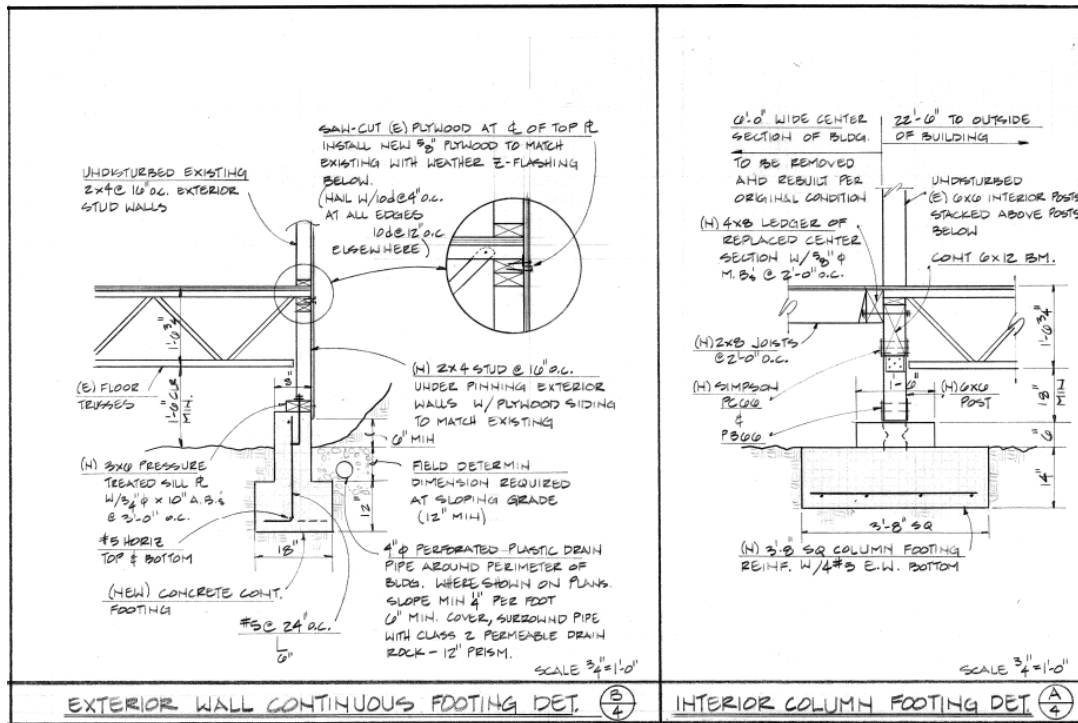 SAW-CUT (E) PLYWOOD AT ℄ OF TOP ℄
INSTALL NEW 5/8" PLYWOOD TO MATCH
EXISTING WITH WEATHER Z-FLASHING
BELOW.
(NAIL W/10d@4"O.C.
AT ALL EDGES
10d@12"O.C.
ELSEWHERE)
UNDISTURBED EXISTING
2x4@16"O.C. EXTERIOR
STUD WALLS
1'-6 3/4"
(E) FLOOR
TRUSSES
1'-6" CLR
MIN.
8"
(N) 2x4 STUD @ 16"O.C.
UNDER PINNING EXTERIOR
WALLS W/PLYWOOD SIDING
TO MATCH EXISTING
6" MIN
(N) 3x6 PRESSURE
TREATED SILL PL
W/3/4"φ x 10" A.B.'s
@ 3'-0" O.C.
FIELD DETERMIN
DIMENSION REQUIRED
AT SLOPING GRADE
(12" MIN)
12"
18"
#5 HORIZ
TOP & BOTTOM
(NEW) CONCRETE CONT.
FOOTING
#5@ 24"O.C.
6"
4"φ PERFORATED PLASTIC DRAIN
PIPE AROUND PERIMETER OF
BLDG. WHERE SHOWN ON PLANS.
SLOPE MIN 1/4" PER FOOT
6" MIN. COVER, SURROUND PIPE
WITH CLASS 2 PERMEABLE DRAIN
ROCK - 12" PRISM.
SCALE 3/4"=1'-0"
EXTERIOR WALL CONTINUOUS FOOTING DET. B/4
6'-0" WIDE CENTER
SECTION OF BLDG.
TO BE REMOVED
AND REBUILT PER
ORIGINAL CONDITION
22'-6" TO OUTSIDE
OF BUILDING
UNDISTURBED
(E) 6x6 INTERIOR POSTS
STACKED ABOVE POSTS
BELOW
(N) 4x8 LEDGER OF
REPLACED CENTER
SECTION W/5/8"φ
M.B.'s @ 2'-0"O.C.
CONT 6x12 BM.
1'-6 3/4"
(N) 2x8 JOISTS
@2'-0"O.C.
(N) SIMPSON
PC66
&
PB66
1'-6"
(N) 6x6
POST
18"
MIN
6"
14"
3'-8" SQ
(N) 3'-8" SQ COLUMN FOOTING
REINF. W/4#3 E.W. BOTTOM
SCALE 3/4"=1'-0"
INTERIOR COLUMN FOOTING DET. A/4